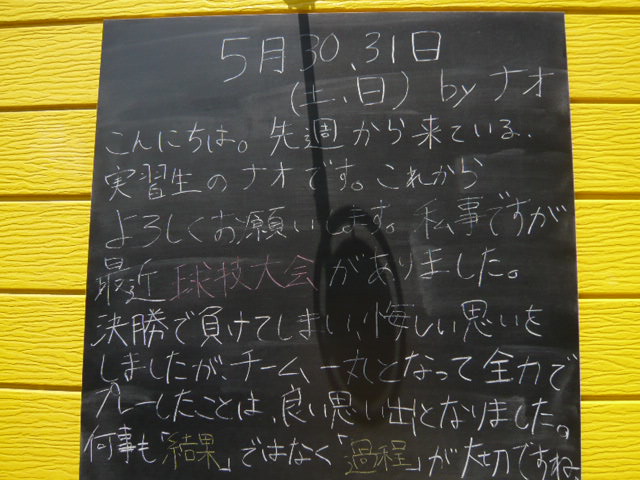 5月30、31日
(土、日) by ナオ
こんにちは。先週から来ている、
実習生のナオです。これから
よろしくお願いします。私事ですが
最近球技大会がありました。
決勝で負けてしまい、悔しい思いを
しましたが、チーム一丸となって全力で
プレーしたことは、良い思い出となりました。
何事も「結果」ではなく「過程」が大切ですね、